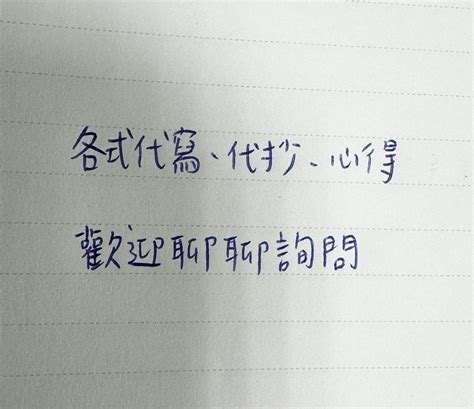 各式代寫、代抄、心得
歡迎聊聊詢問